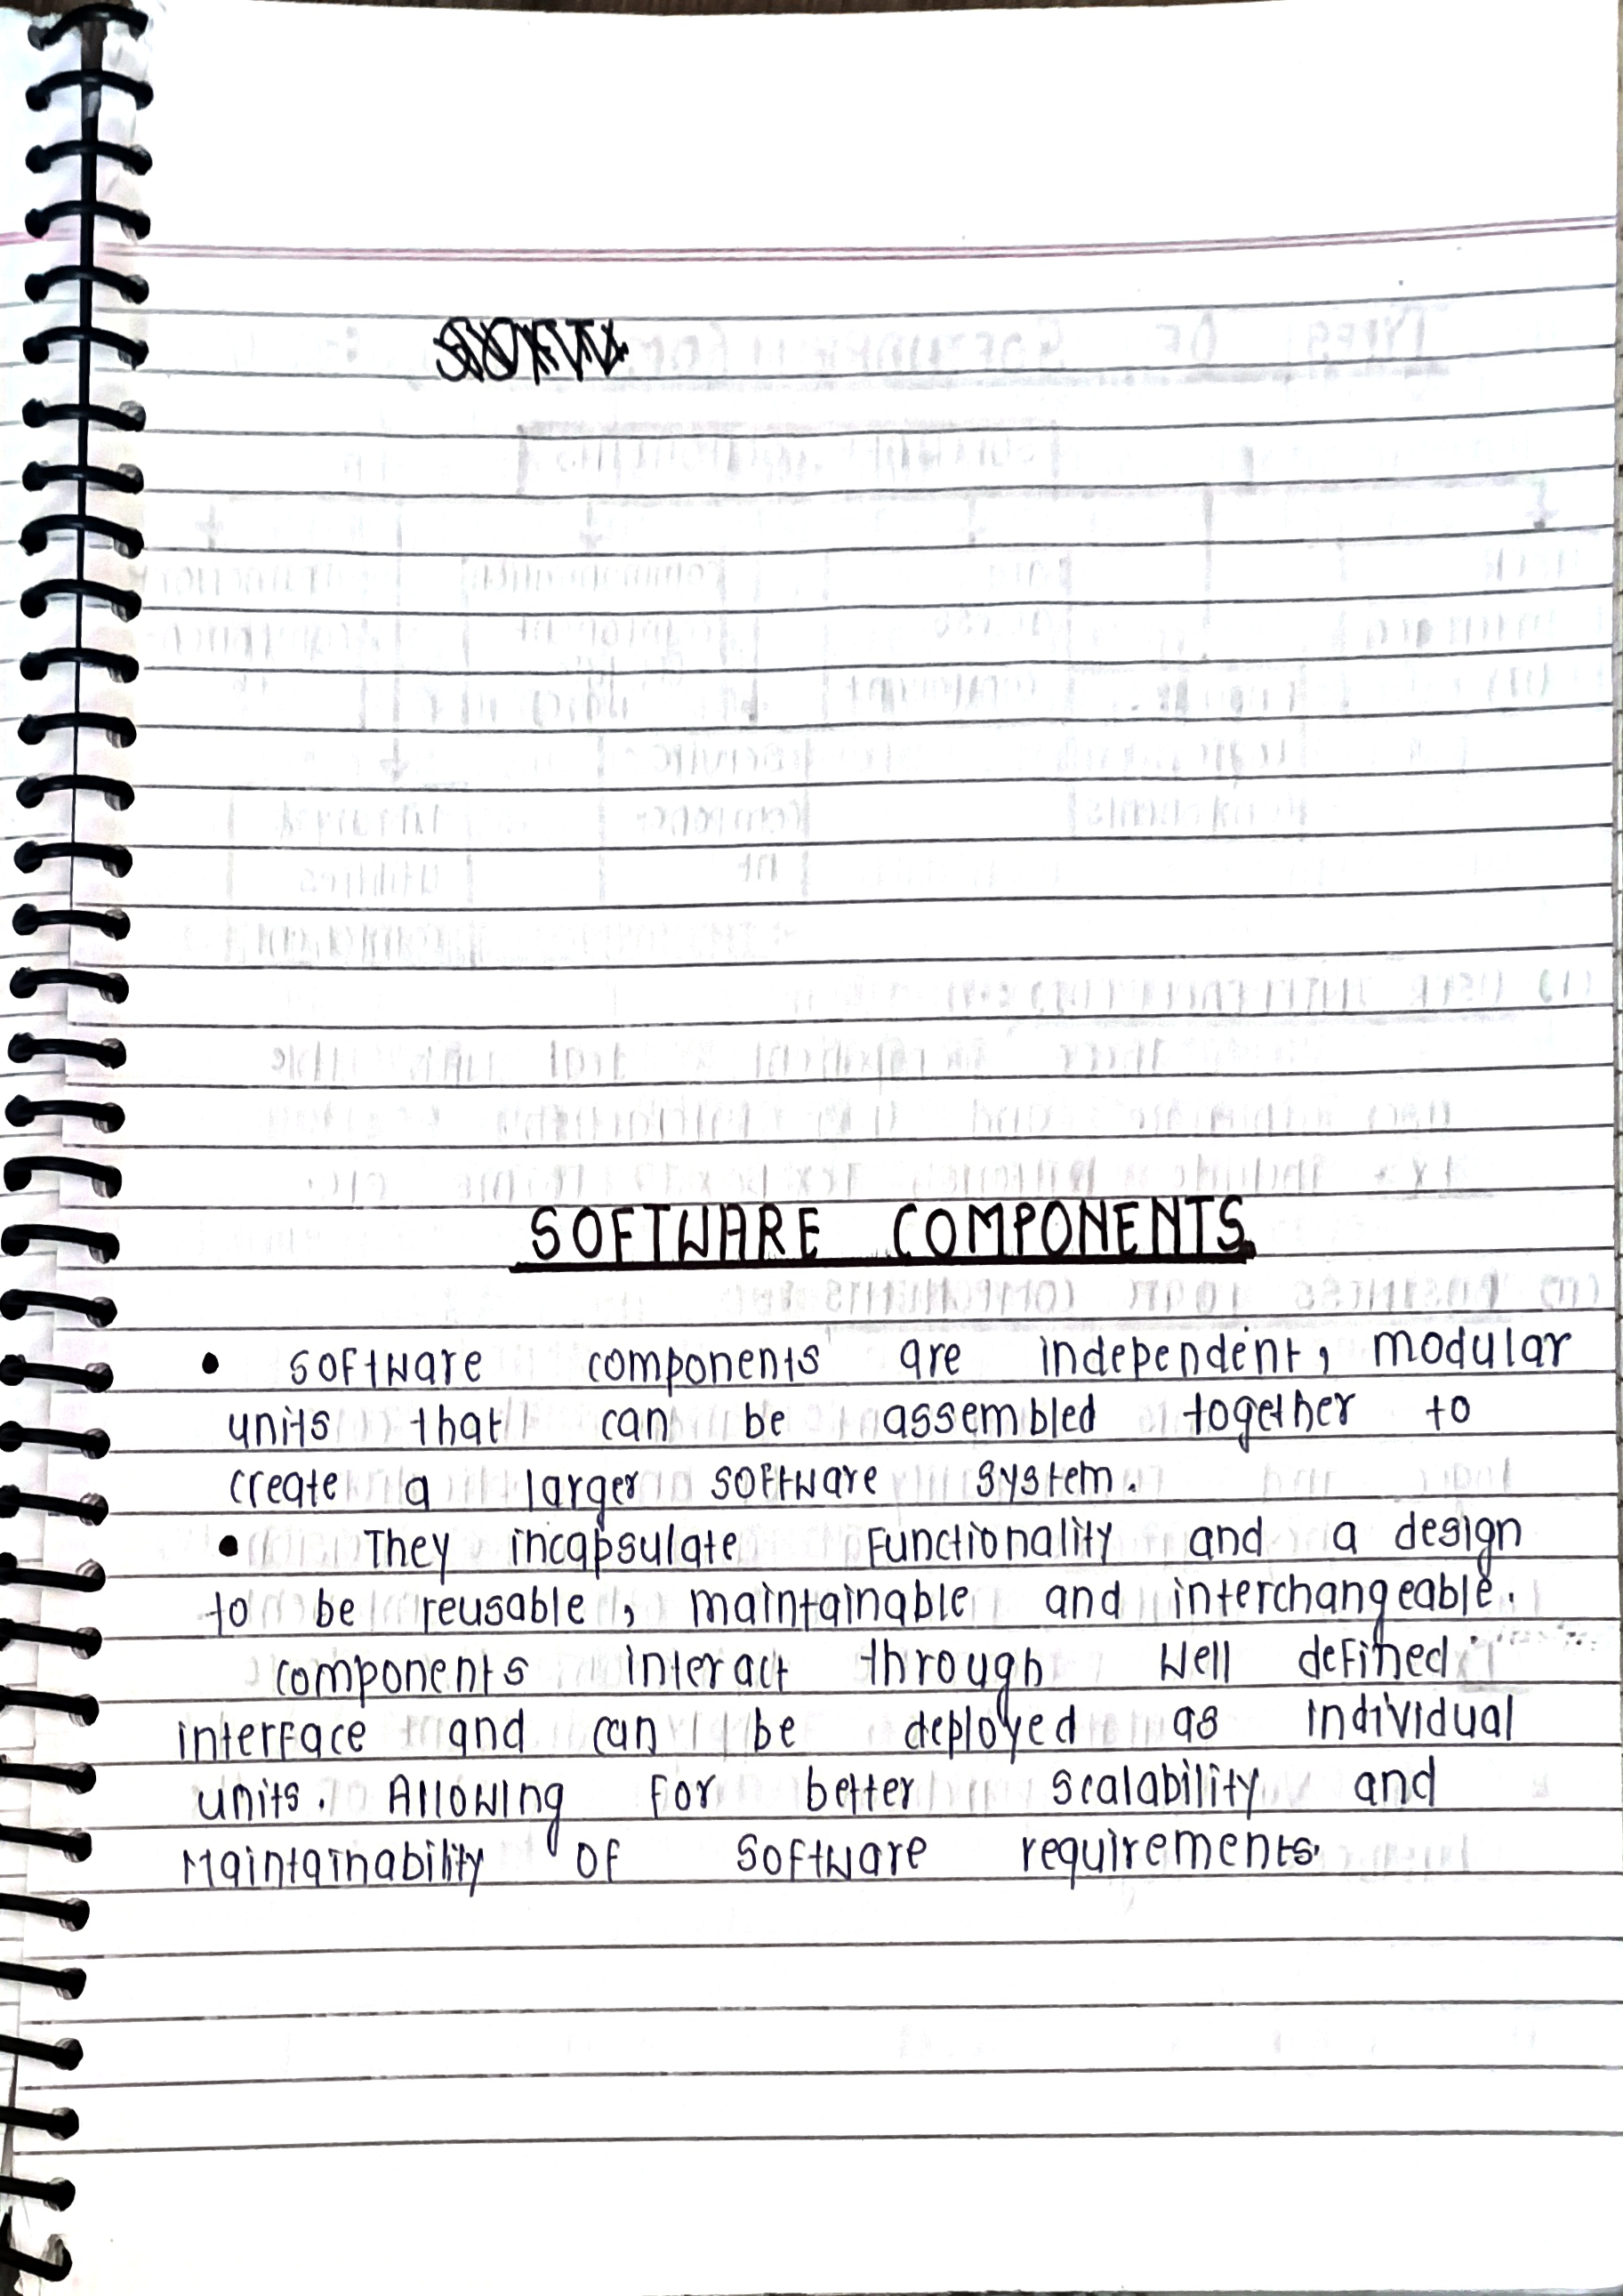 SOFTWARE COMPONENTS
• software components are independent, modular
units that can be assembled together to
create a larger software system.
• They incapsulate Functionality and a design
to be reusable, maintainable and interchangeable.
components interact through well defined
interface and can be deployed as individual
units. Allowing for better scalability and
Maintainability of software requirements.